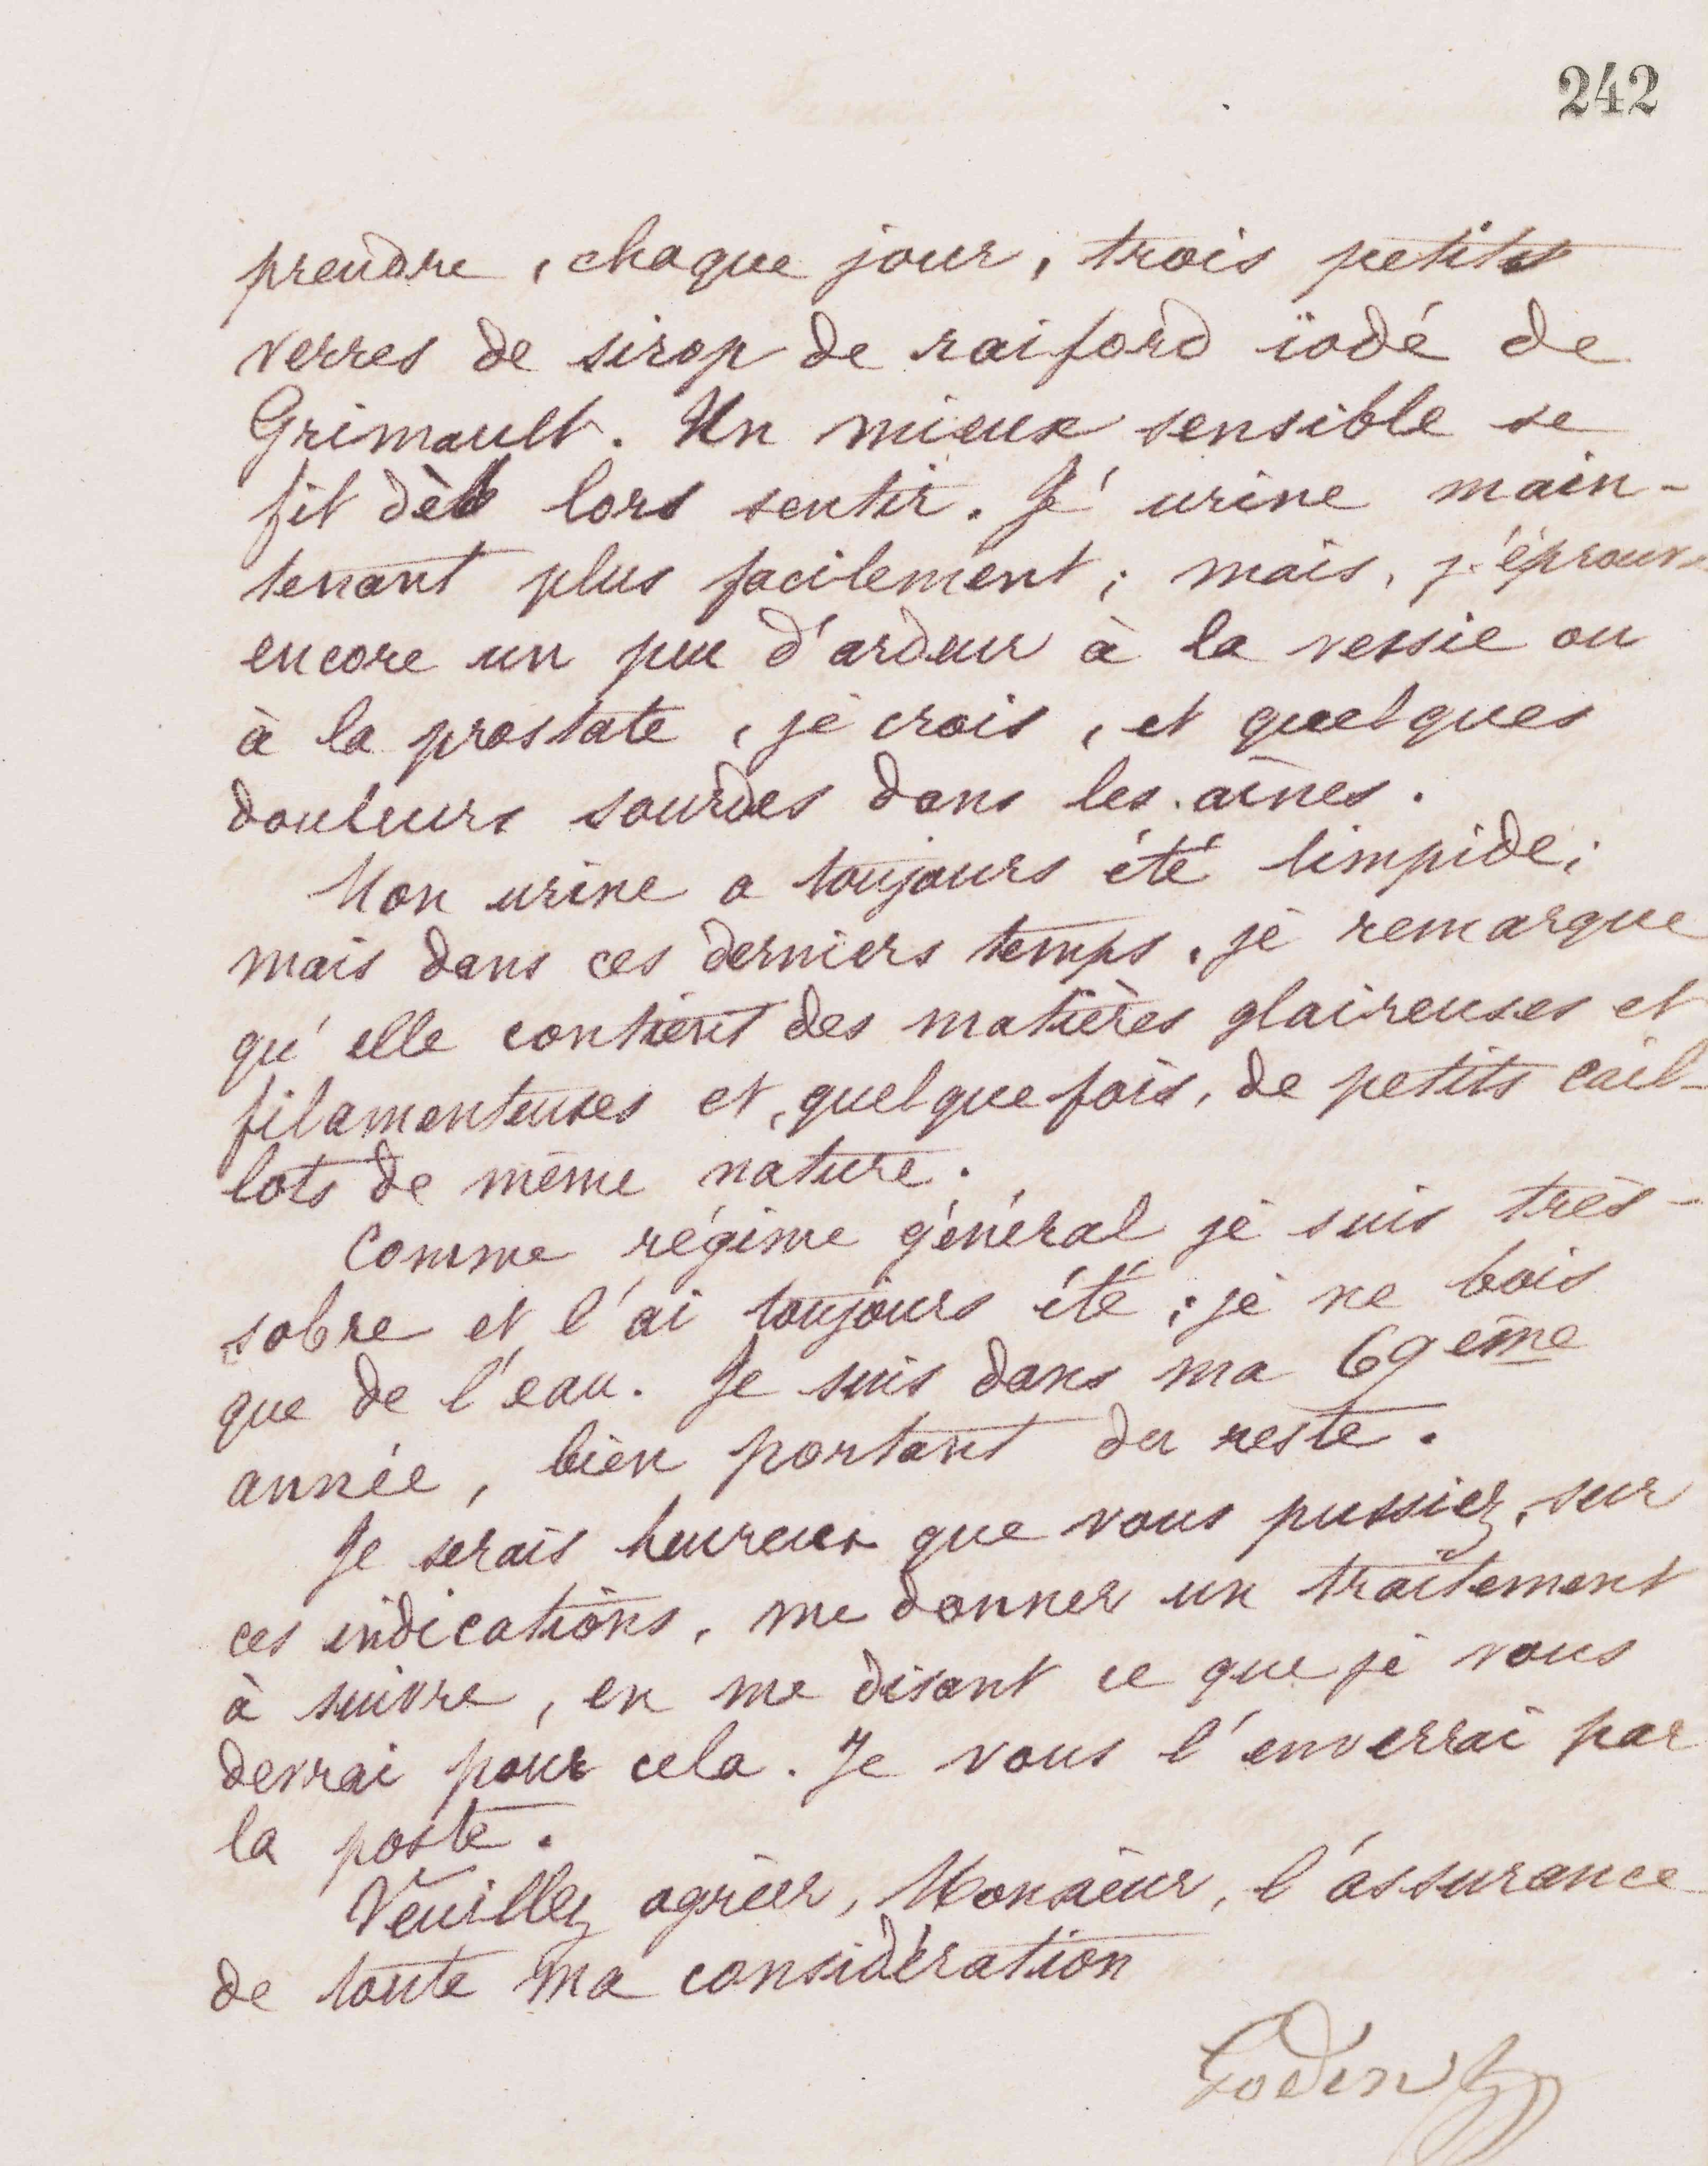 242
prendre, chaque jour, trois petits
verres de sirop de raiford iodé de
Grimault. Un mieux sensible se
fit dès lors sentir. J'urine main-
tenant plus facilement; mais, j'éprouve
encore un peu d'ardeur à la vessie ou
à la prostate, je crois, et quelques
douleurs sourdes dans les aînes.
Mon urine a toujours été limpide;
mais dans ces derniers temps, je remarque
qu'elle contient des matières glaireuses et
filamenteuses et, quelquefois, de petits cail-
lots de même nature.
Comme régime général je suis très-
sobre et l'ai toujours été; je ne bois
que de l'eau. Je suis dans ma 69ème
année, bien portant du reste.
Je serais heureux que vous pussiez, sur
ces indications, me donner un traitement
à suivre, en me disant ce que je vous
devrai pour cela. Je vous l'enverrai par
la poste.
Veuillez agréer, Monsieur, l'assurance
de toute ma considération
Godin